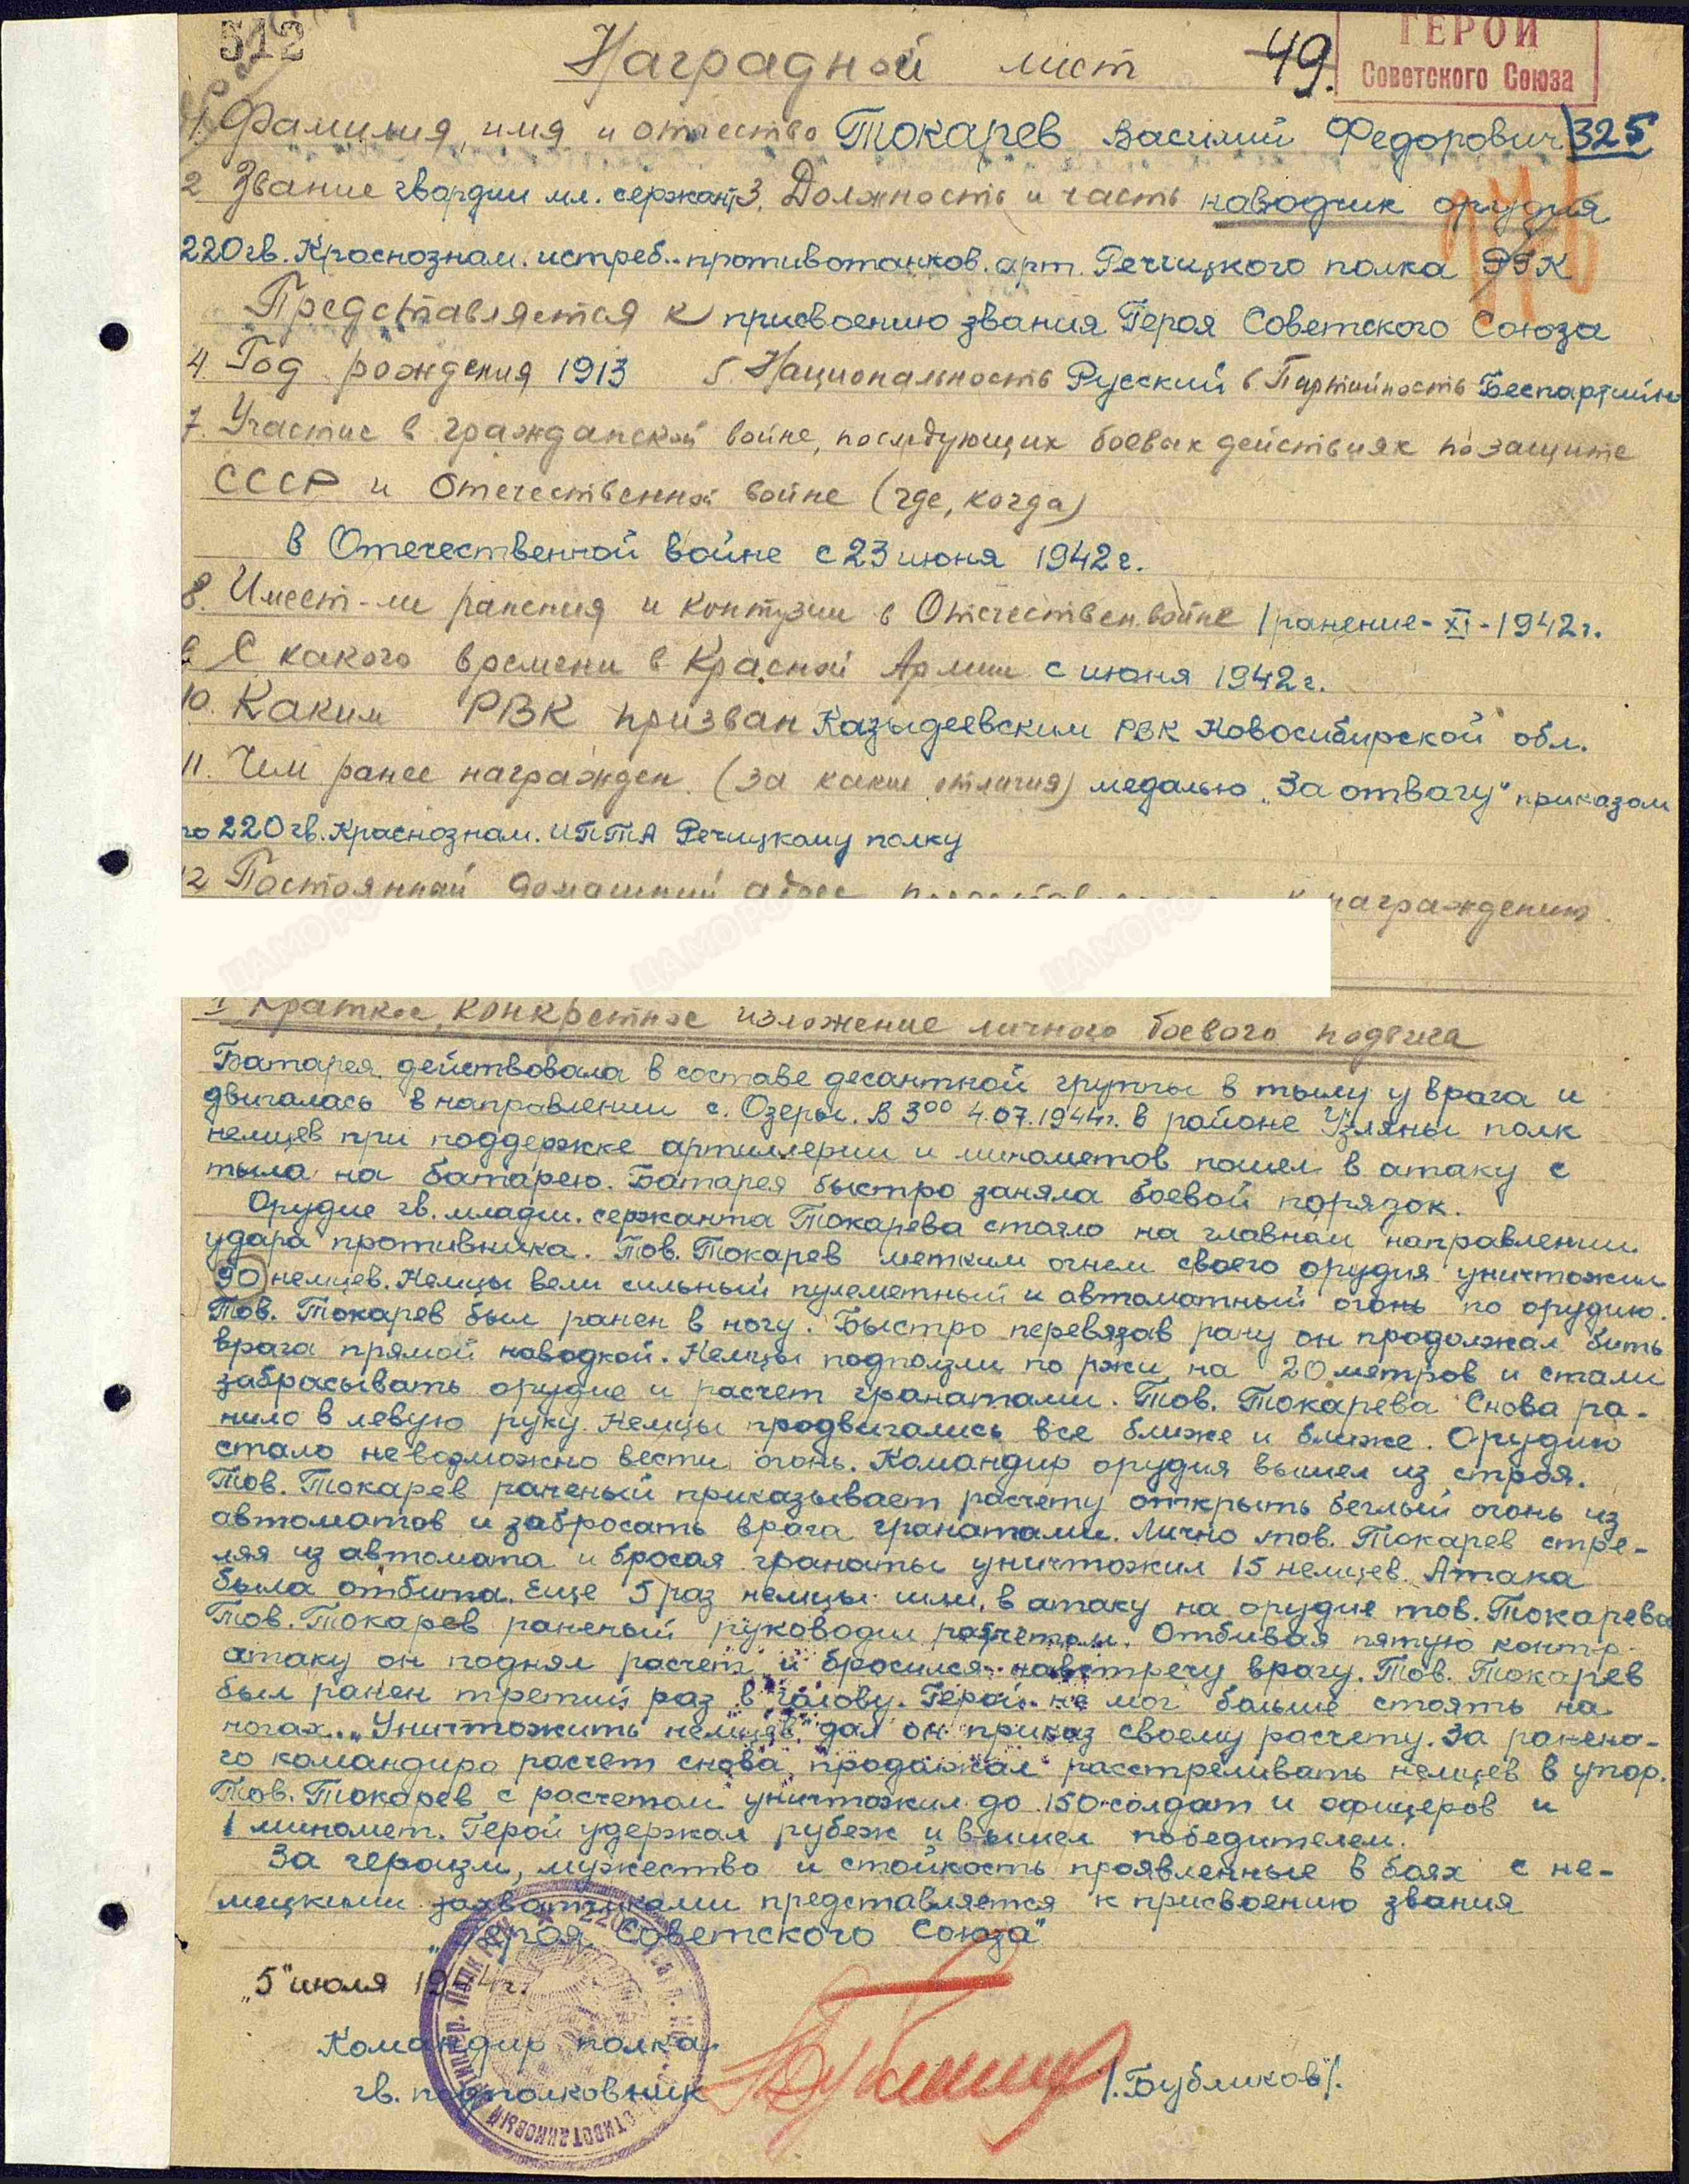 512
Наградной лист 49.
ГЕРОЙ
Советского Союза
1. Фамилия, имя и отчество Токарев Василий Федорович 325
2 Звание гвардии мл. сержант 3. Должность и часть наводчик орудия
220 гв. Краснознам. истреб.-противотанков. арт. Речицкого полка РГК
Представляется к присвоению звания Героя Советского Союза
4. Год рождения 1913 5. Национальность Русский 6. Партийность Беспартийн
7. Участие в гражданской войне, последующих боевых действиях по защите
СССР и Отечественной войне (где, когда)
в Отечественной войне с 23 июня 1942 г.
8. Имеет-ли ранения и контузии в Отечествен. войне 1 ранение - XI - 1942 г.
9 С какого времени в Красной Армии с июня 1942 г.
10. Каким РВК призван Казыдеевским РВК Новосибирской обл.
11. Чем ранее награжден (за какие отличия) медалью „За отвагу" приказом
по 220 гв. Краснознам. ИПТА Речицкому полку
12 Постоянный домашний адрес к награждению.
I Краткое, конкретное изложение личного боевого подвига
Батарея действовала в составе десантной группы в тылу у врага и
двигалась в направлении с. Озеры. В 3⁰⁰ 4.07.1944г. в районе Узляны полк
немцев при поддержке артиллерии и минометов пошел в атаку с
тыла на батарею. Батарея быстро заняла боевой порядок.
Орудие гв. младш. сержанта Токарева стояло на главном направлении
удара противника. Тов. Токарев метким огнем своего орудия уничтожил
90 немцев. Немцы вели сильный пулеметный и автоматный огонь по орудию.
Тов. Токарев был ранен в ногу. Быстро перевязав рану он продолжал бить
врага прямой наводкой. Немцы подползли по ржи на 20 метров и стали
забрасывать орудие и расчет гранатами. Тов. Токарева снова ра-
нило в левую руку. Немцы продвигались все ближе и ближе. Орудию
стало невозможно вести огонь. Командир орудия вышел из строя.
Тов. Токарев раненый приказывает расчету открыть беглый огонь из
автоматов и забросать врага гранатами. Лично тов. Токарев стре-
ляя из автомата и бросая гранаты уничтожил 15 немцев. Атака
была отбита. Еще 5 раз немцы шли в атаку на орудие тов. Токарева
Тов. Токарев раненый руководил расчетом. Отбивая пятую контр-
атаку он поднял расчет и бросился навстречу врагу. Тов. Токарев
был ранен третий раз в голову. Герой не мог больше стоять на
ногах. „Уничтожить немцев" дал он приказ своему расчету. За ранено-
го командира расчет снова продолжал расстреливать немцев в упор.
Тов. Токарев с расчетом уничтожил до 150 солдат и офицеров и
1 миномет. Герой удержал рубеж и вышел победителем.
За героизм, мужество и стойкость проявленные в боях с не-
мецкими захватчиками представляется к присвоению звания
„Героя Советского Союза"
„5" июля 1944 г.
Командир полка
гв. подполковник /.Бубликов/.